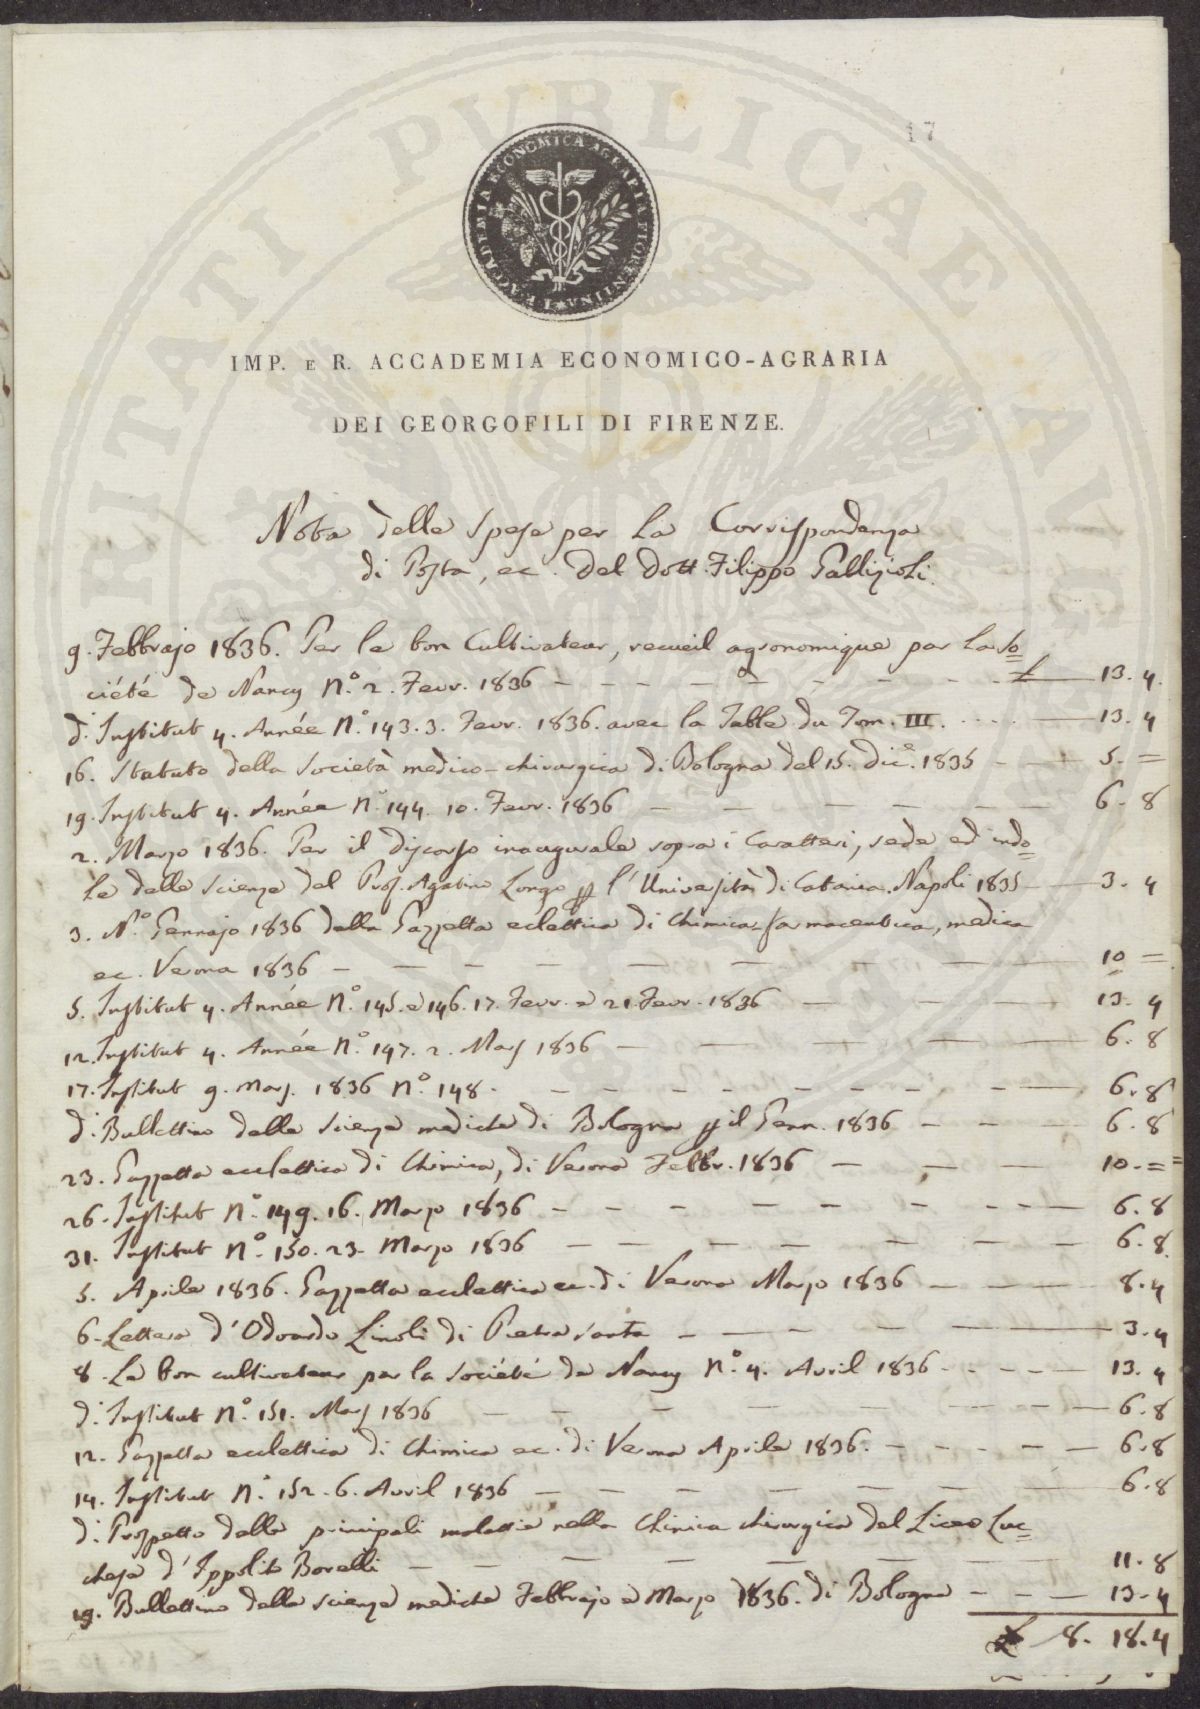 PROSPERITATI PUBLICAE AUGENDAE
17
I. E R. ACCADEMIA ECONOMICA AGRARIA FIORENTINA
IMP. E R. ACCADEMIA ECONOMICO-AGRARIA
DEI GEORGOFILI DI FIRENZE.
Nota delle Spese per la Corrispondenza
di Posta, ec. del Dott. Filippo Gallizioli.
9. Febbrajo 1836. Per le bon Cultivateur, recueil agronomique par la So=
ciété de Nancy N.º 2. Fevr. 1836 - - - - £ 13. 4.
d.º Institut 4. Année N.º 143. 3. Fevr. 1836. avec la Table du Tom. III. .... 13. 4
16. Statuto della Società medico-chirurgica di Bologna del 15. Dic.e 1835 - - 5. =
19. Institut 4. Année N.º 144. 10. Fevr. 1836 - - - - 6. 8
2. Marzo 1836. Per il discorso inaugurale sopra i Caratteri, sede ed indo=
le delle Scienze del Prof. Agatino Longo p l'Università di Catania. Napoli 1835 - 3. 4
3. N.º Gennajo 1836 della Gazzetta eclettica di Chimica farmaceutica, medica
ec. Verona 1836 - - - - - 10 =
5. Institut 4. Année N.º 145. e 146. 17. Fevr. e 21. Fevr. 1836 - - - 13. 4
12. Institut 4. Année N.º 147. 2. Mars 1836 - - - - 6. 8
17. Institut 9. Mars. 1836 N.º 148. - - - - 6. 8
d.º Bullettino delle Scienze mediche di Bologna p il Genn. 1836 - - - 6. 8
23. Gazzetta ecclettica di Chimica, di Verona Febbr. 1836 - - - 10. =
26. Institut N.º 149. 16. Marzo 1836 - - - - 6. 8
31. Institut N.º 150. 23. Marzo 1836 - - - - 6. 8.
5. Aprile 1836. Gazzetta ecclettica ec. di Verona Marzo 1836 - - - 8. 4
6. Lettera d'Odoardo Linoli di Pietra Santa - - - - 3. 4
8. Le bon cultivateur par la Société de Nancy N.º 4. Avril 1836 - - - 13. 4
d.º Institut N.º 151. Mars 1836 - - - - 6. 8
12. Gazzetta ecclettica di Chimica ec. di Verona Aprile 1836. - - - - 6. 8
14. Institut N.º 152. 6. Avril 1836 - - - - 6. 8
d.º Prospetto delle principali malattie nella Clinica chirurgica del Liceo Luc=
chese d'Ippolito Borelli - - - - 11. 8
19. Bullettino delle Scienze mediche Febbrajo e Marzo 1836. di Bologna - - - 13. 4
£ 8. 18. 4